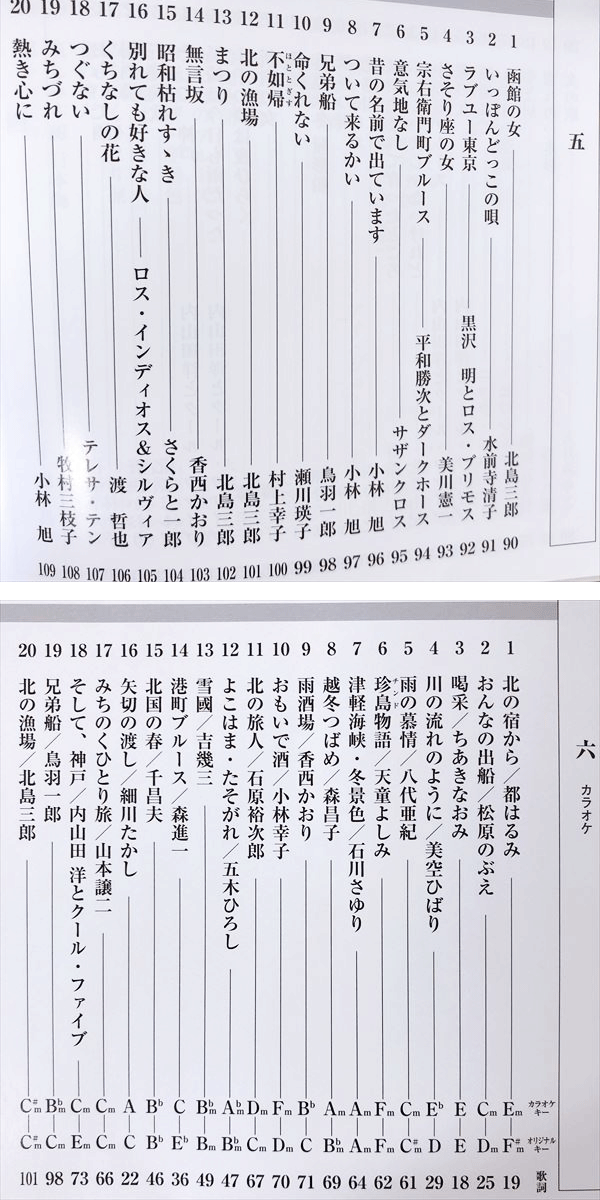 五
1 函館の女 北島三郎 90
2 いっぽんどっこの唄 水前寺清子 91
3 ラブユー東京 黒沢 明とロス・プリモス 92
4 さそり座の女 美川憲一 93
5 宗右衛門町ブルース 平和勝次とダークホース 94
6 意気地なし サザンクロス 95
7 昔の名前で出ています 小林 旭 96
8 ついて来るかい 小林 旭 97
9 兄弟船 鳥羽一郎 98
10 命くれない 瀬川瑛子 99
11 不如帰 ほととぎす 村上幸子 100
12 北の漁場 北島三郎 101
13 まつり 北島三郎 102
14 無言坂 香西かおり 103
15 昭和枯れすゝき さくらと一郎 104
16 別れても好きな人 ロス・インディオス&シルヴィア 105
17 くちなしの花 渡 哲也 106
18 つぐない テレサ・テン 107
19 みちづれ 牧村三枝子 108
20 熱き心に 小林 旭 109
六 カラオケ
カラオケキー オリジナルキー 歌詞
1 北の宿から/都はるみ Em F#m 19
2 おんなの出船/松原のぶえ Cm Dm 25
3 喝采/ちあきなおみ E E 18
4 川の流れのように/美空ひばり Eb D 29
5 雨の慕情/八代亜紀 Cm C#m 61
6 珍島物語 チンド/天童よしみ Fm Fm 62
7 津軽海峡・冬景色/石川さゆり Am Am 64
8 越冬つばめ/森昌子 Am Bbm 69
9 雨酒場/香西かおり Bb C 71
10 おもいで酒/小林幸子 Fm Dm 70
11 北の旅人/石原裕次郎 Dm Cm 67
12 よこはま・たそがれ/五木ひろし Abm Bbm 47
13 雪國/吉幾三 Bbm Bbm 49
14 港町ブルース/森進一 C Eb 36
15 北国の春/千昌夫 Bb Bb 46
16 矢切の渡し/細川たかし A C 22
17 みちのくひとり旅/山本譲二 Cm Cm 66
18 そして、神戸/内山田 洋とクール・ファイブ Cm Em 73
19 兄弟船/鳥羽一郎 Bbm Cm 98
20 北の漁場/北島三郎 C#m C#m 101